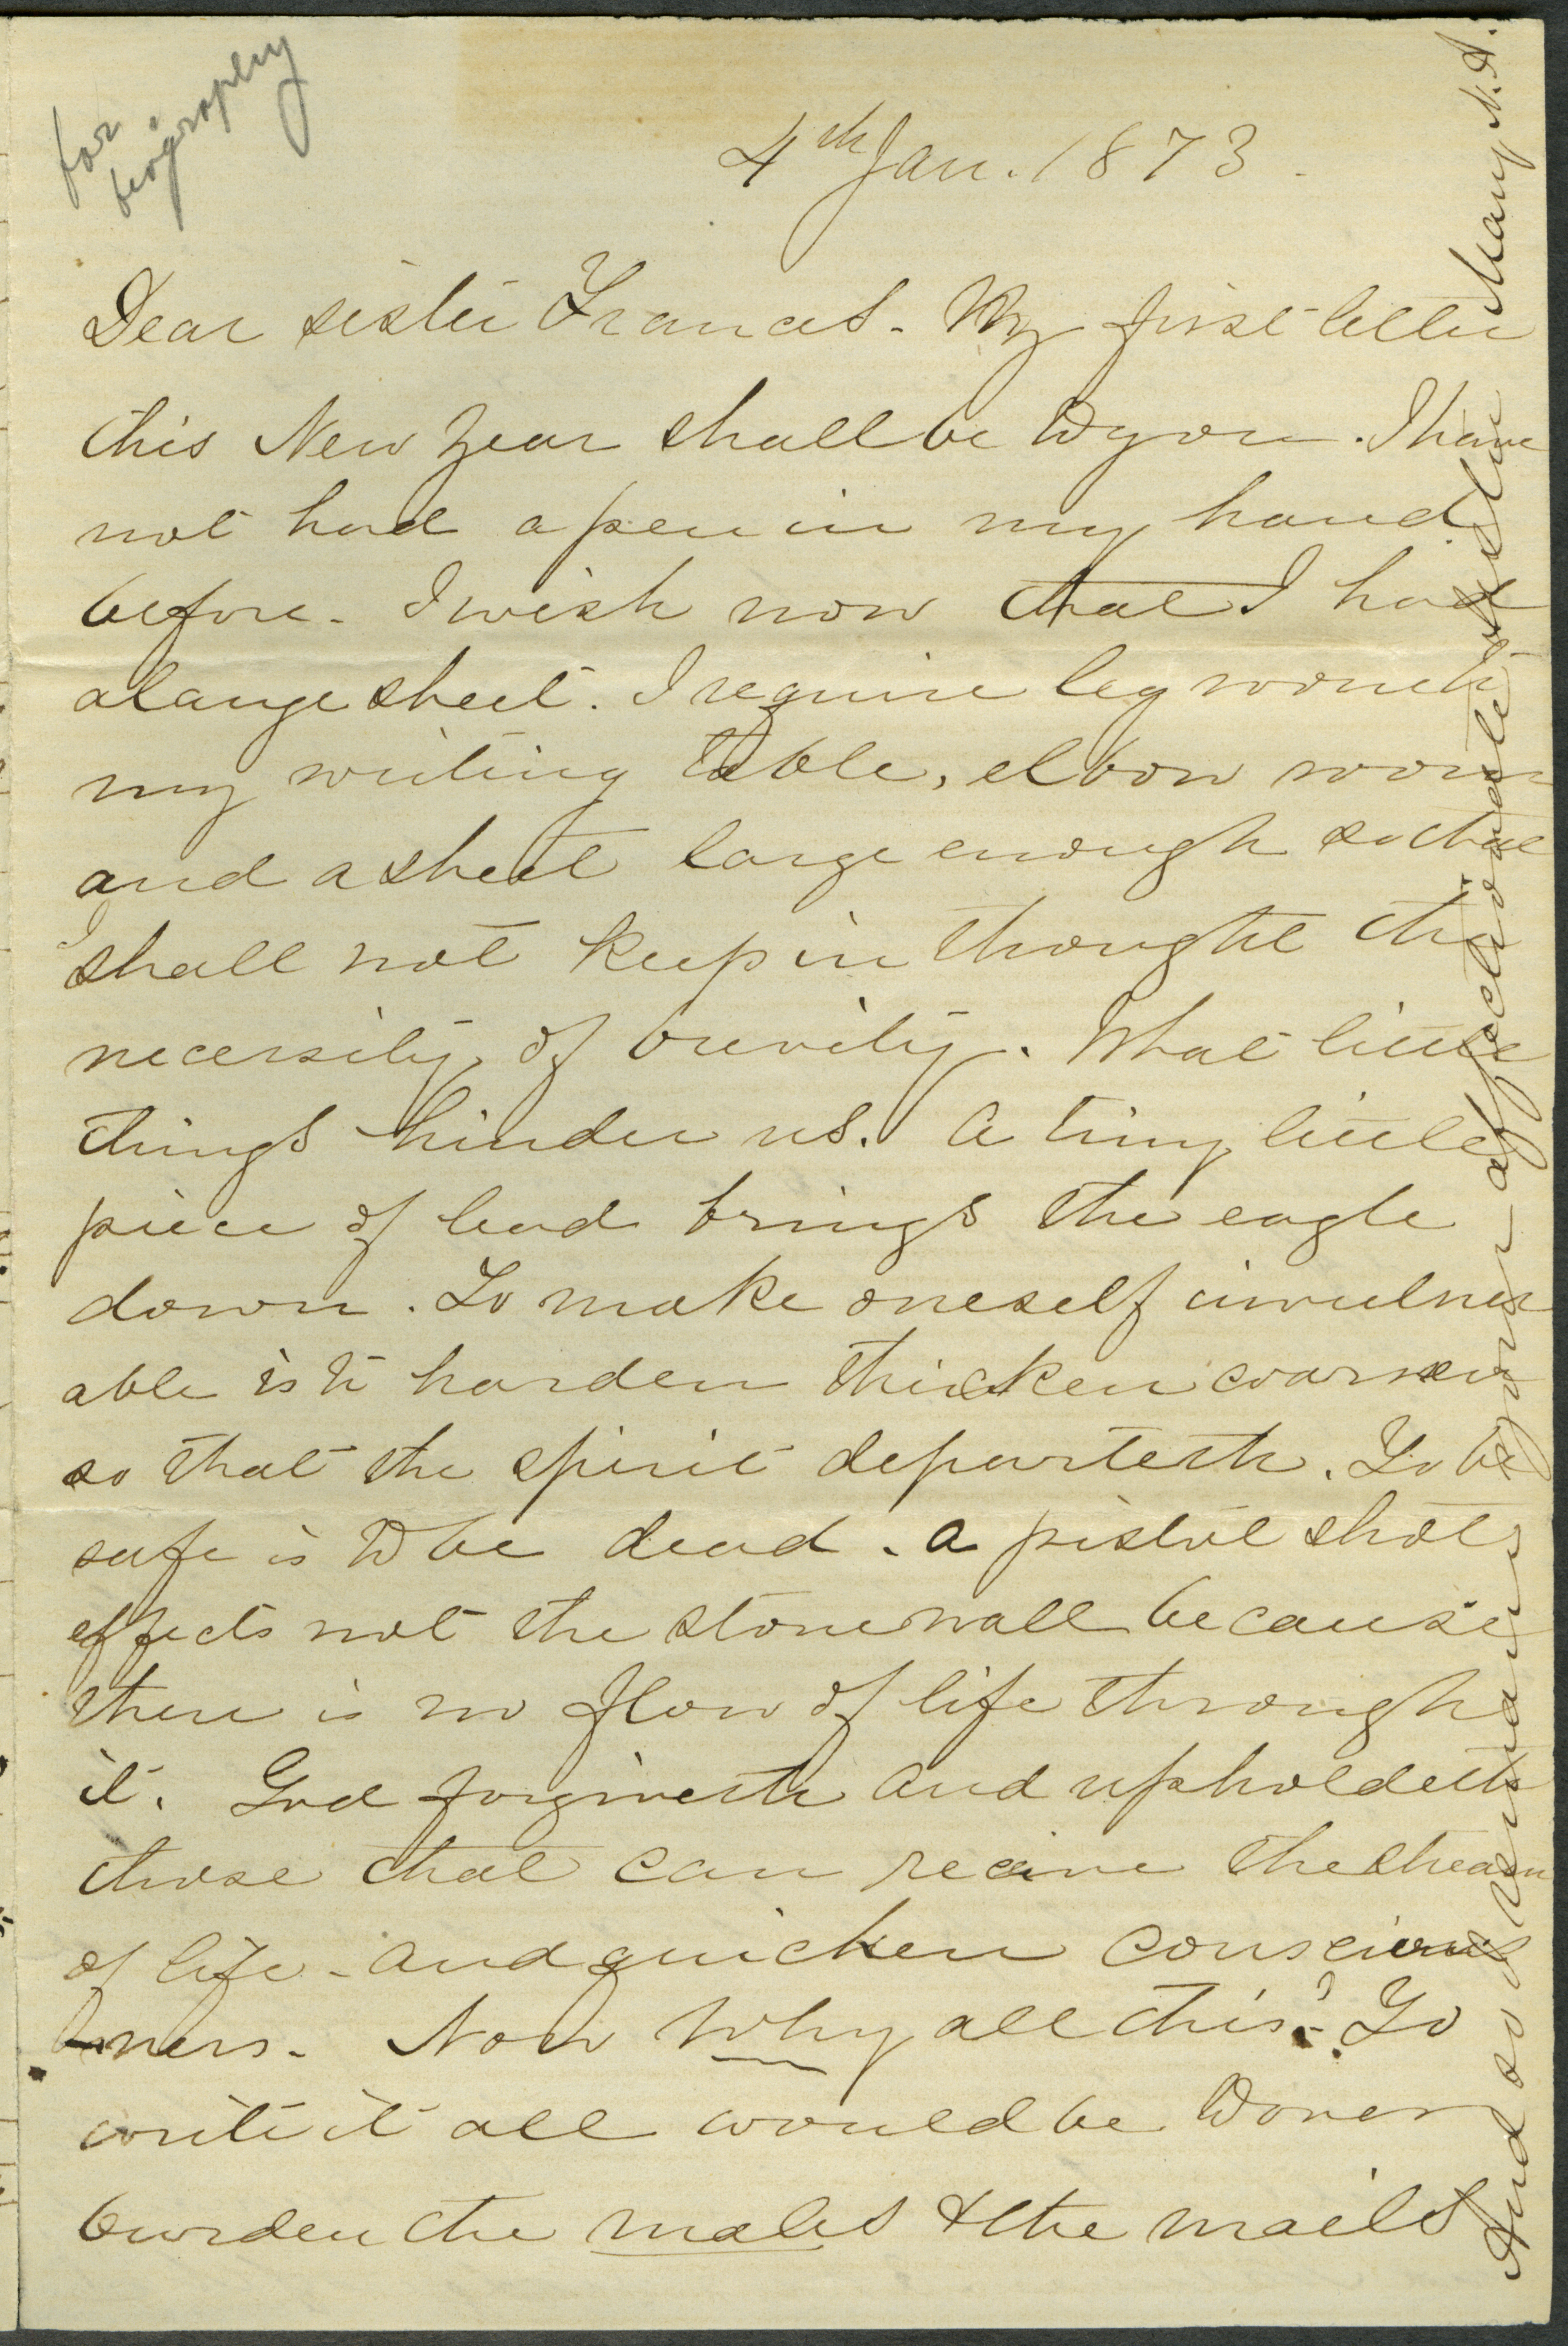 for
biography
4th Jan. 1873.
Dear sister Frances. My first letter
this New Year shall be to you. I have
not had a pen in my hand
before. I wish now that I had
a large sheet. I require leg room
my writing table, elbow room
and a sheet large enough so that
I shall not keep in thought the
necessity of brevity. What little
things hinder us. A tiny little
piece of lead brings the eagle
down. To make oneself invulner
able is to harden thicken coarsen
so that the spirit departeth. To be
safe is to be dead. a pistol shot
effects not the stone wall because
there is no flow of life through
it. God forgiveth and upholdeth
those that can receive the stream
of life - and quicken conscious
ness. Now Why all this? To
write it all would be to over
burden the males & the mails
And so I remain your affectionate sister Mary N. A.